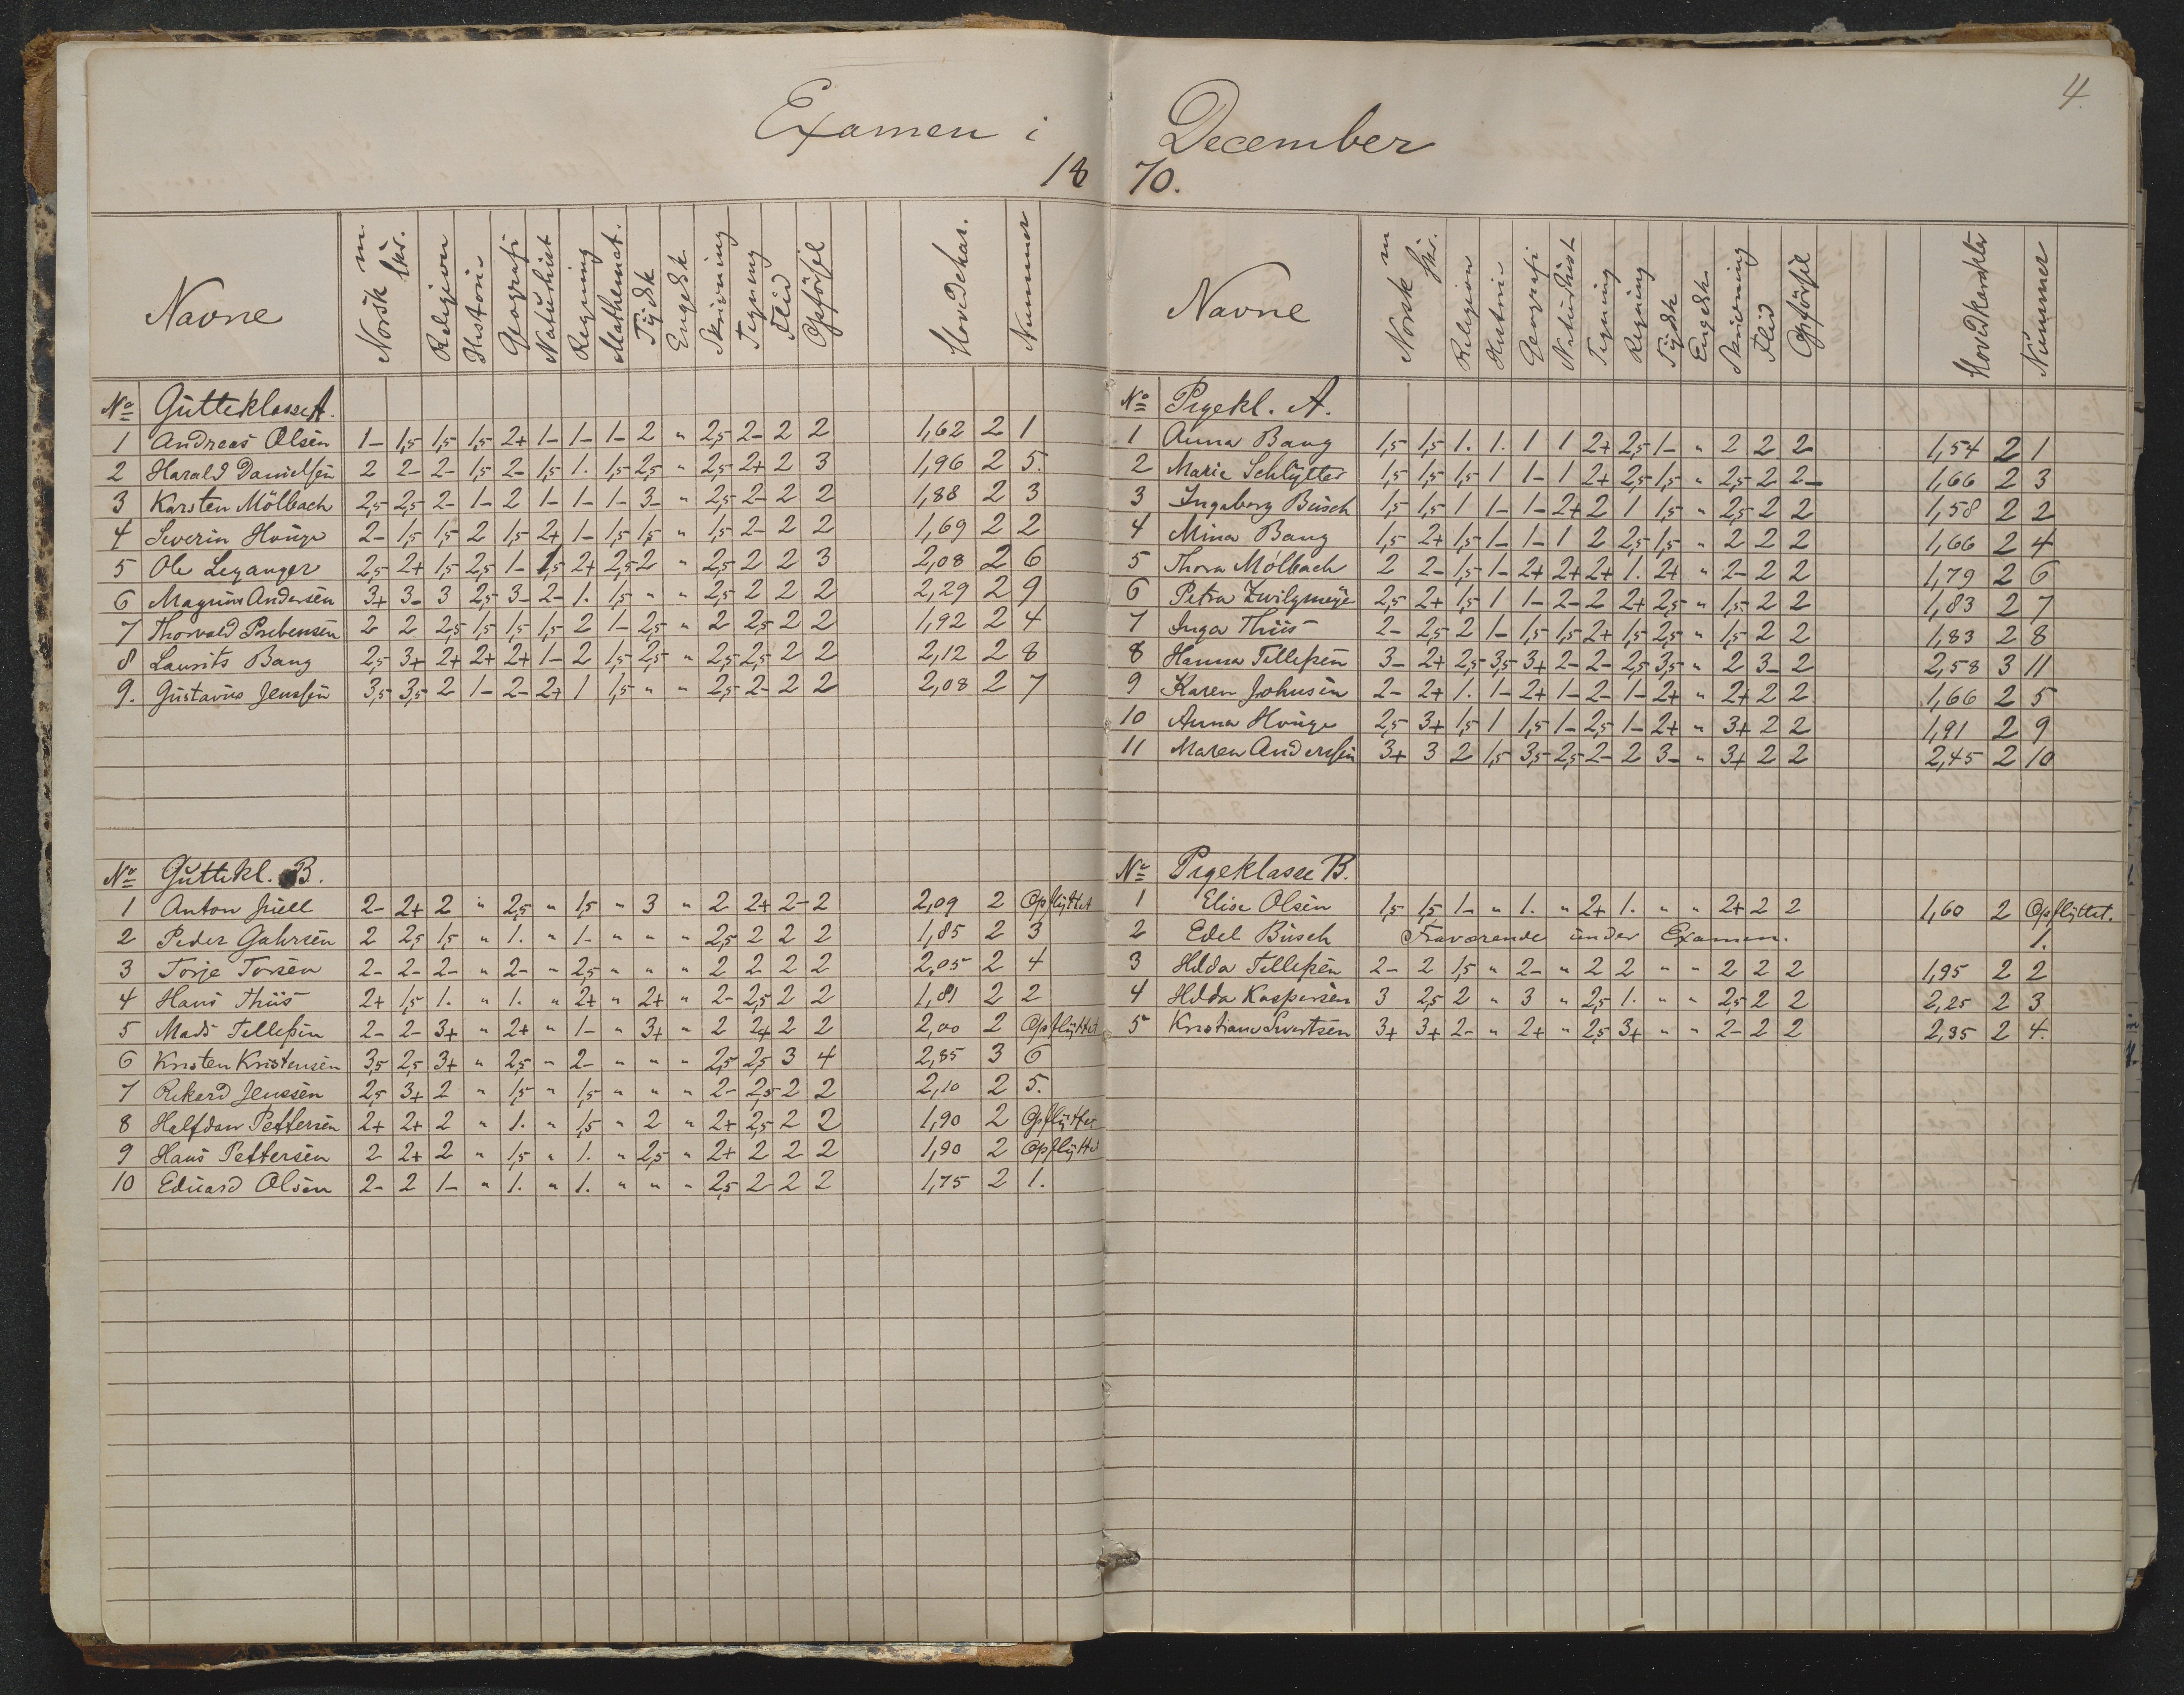 Examen i December
1870.
4.
Navne Norsk m. Skr. Religion Historie Geografi Naturhist Regning Mathemat. Tydsk Engelsk Skrivning Tegning Flid Opförsel Hovedchar. Nummer
No Gutteklasse A.
1 Andreas Olsen 1- 1,5 1,5 1,5 2+ 1- 1- 1- 2 " 2,5 2- 2 2 1,62 2 1
2 Harald Danielsen 2 2- 2- 1,5 2- 1,5 1. 1,5 2,5 " 2,5 2+ 2 3 1,96 2 5.
3 Karsten Mölbach 2,5 2,5 2- 1- 2 1- 1- 1- 3- " 2,5 2- 2 2 1,88 2 3
4 Severin Houge 2- 1,5 1,5 2 1,5 2+ 1- 1,5 1,5 " 1,5 2- 2 2 1,69 2 2
5 Ole Leganger 2,5 2+ 1,5 2,5 1- 1,5 2+ 2,5 2 " 2,5 2 2 3 2,08 2 6
6 Magnus Andersen 3+ 3- 3 2,5 3- 2- 1. 1,5 " " 2,5 2 2 2 2,29 2 9
7 Thorvald Prebensen 2 2 2,5 1,5 1,5 1,5 2 1- 2,5 " 2 2,5 2 2 1,92 2 4
8 Laurits Bang 2,5 3+ 2+ 2+ 2+ 1- 2 1,5 2,5 " 2,5 2,5 2 2 2,12 2 8
9. Gustavus Jensen 3,5 3,5 2 1- 2- 2+ 1 1,5 " " 2,5 2- 2 2 2,08 2 7
No Guttekl. B.
1 Anton Juell 2- 2+ 2 " 2,5 " 1,5 " 3 " 2 2+ 2- 2 2,09 2 Opflyttet
2 Peder Gahrsen 2 2,5 1,5 " 1. " 1- " " " 2,5 2 2 2 1,85 2 3
3 Torje Torsen 2- 2- 2- " 2- " 2,5 " " " 2 2 2 2 2,05 2 4
4 Hans Thiis 2+ 1,5 1. " 1. " 2+ " 2+ " 2- 2,5 2 2 1,81 2 2
5 Mads Tellefsen 2- 2- 3+ " 2+ " 1- " 3+ " 2 2+ 2 2 2,00 2 Opflyttet
6 Kristen Kristensen 3,5 2,5 3+ " 2,5 " 2- " " " 2,5 2,5 3 4 2,85 3 6
7 Rikard Jenssen 2,5 3+ 2 " 1,5 " 1,5 " " " 2- 2,5 2 2 2,10 2 5.
8 Halfdan Pettersen 2+ 2+ 2 " 1. " 1,5 " 2 " 2+ 2,5 2 2 1,90 2 Opflyttet
9 Hans Pettersen 2 2+ 2 " 1,5 " 1. " 2,5 " 2+ 2 2 2 1,90 2 Opflyttet
10 Eduard Olsen 2- 2 1- " 1. " 1. " " " 2,5 2- 2 2 1,75 2 1.
Navne Norsk m Skr. Religion Historie Geografi Naturhist Tegning Regning Tydsk Engelsk Skrivning Flid Opförsel Hovedkarakter Nummer
No Pigekl. A.
1 Anna Bang 1,5 1,5 1. 1. 1 1 2+ 2,5 1- " 2 2 2 1,54 2 1
2 Marie Schlytter 1,5 1,5 1,5 1 1- 1 2+ 2,5 1,5 " 2,5 2 2- 1,66 2 3
3 Ingeborg Busch 1,5 1,5 1 1- 1- 2+ 2 1 1,5 " 2,5 2 2 1,58 2 2
4 Mina Bang 1,5 2+ 1,5 1- 1- 1 2 2,5 1,5 " 2 2 2 1,66 2 4
5 Thora Mölbach 2 2- 1,5 1- 2+ 2+ 2+ 1. 2+ " 2- 2 2 1,79 2 6
6 Petra Zwilgmeyer 2,5 2+ 1,5 1 1- 2- 2 2+ 2,5 " 1,5 2 2 1,83 2 7
7 Inga Thiis 2- 2,5 2 1- 1,5 1,5 2+ 1,5 2,5 " 1,5 2 2 1,83 2 8
8 Hanna Tellefsen 3- 2+ 2,5 3,5 3+ 2- 2- 2,5 3,5 " 2 3- 2 2,58 3 11
9 Karen Johnsen 2- 2+ 1. 1- 2+ 1- 2- 1- 2+ " 2+ 2 2 1,66 2 5
10 Anna Houge 2,5 3+ 1,5 1 1,5 1- 2,5 1- 2+ " 3+ 2 2 1,91 2 9
11 Maren Anderssen 3+ 3 2 1,5 3,5 2,5 2- 2 3- " 3+ 2 2 2,45 2 10
No Pigeklasse B.
1 Elise Olsen 1,5 1,5 1- " 1. " 2+ 1. " " 2+ 2 2 1,60 2 Opflyttet.
2 Edel Busch Fraværende under Examen. 1.
3 Hilda Tellefsen 2- 2 1,5 " 2- " 2 2 " " 2 2 2 1,95 2 2
4 Hilda Kaspersen 3 2,5 2 " 3 " 2,5 1. " " 2,5 2 2 2,25 2 3
5 Kristiane Sivertsen 3+ 3+ 2- " 2+ " 2,5 3+ " " 2- 2 2 2,35 2 4.